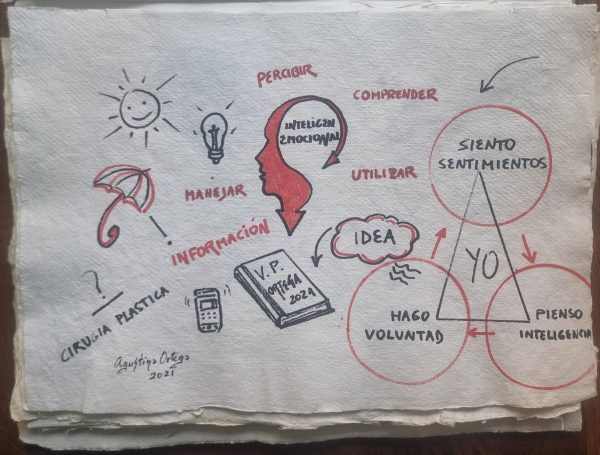 PERCIBIR
COMPRENDER
INTELIGEN
EMOCIONAL
MANEJAR
UTILIZAR
INFORMACIÓN
SIENTO
SENTIMIENTOS
YO
IDEA
V.P.
ORTEGA
2021
HAGO
VOLUNTAD
PIENSO
INTELIGENCIA
?
CIRUGIA PLASTICA
Agustina Ortega
2021